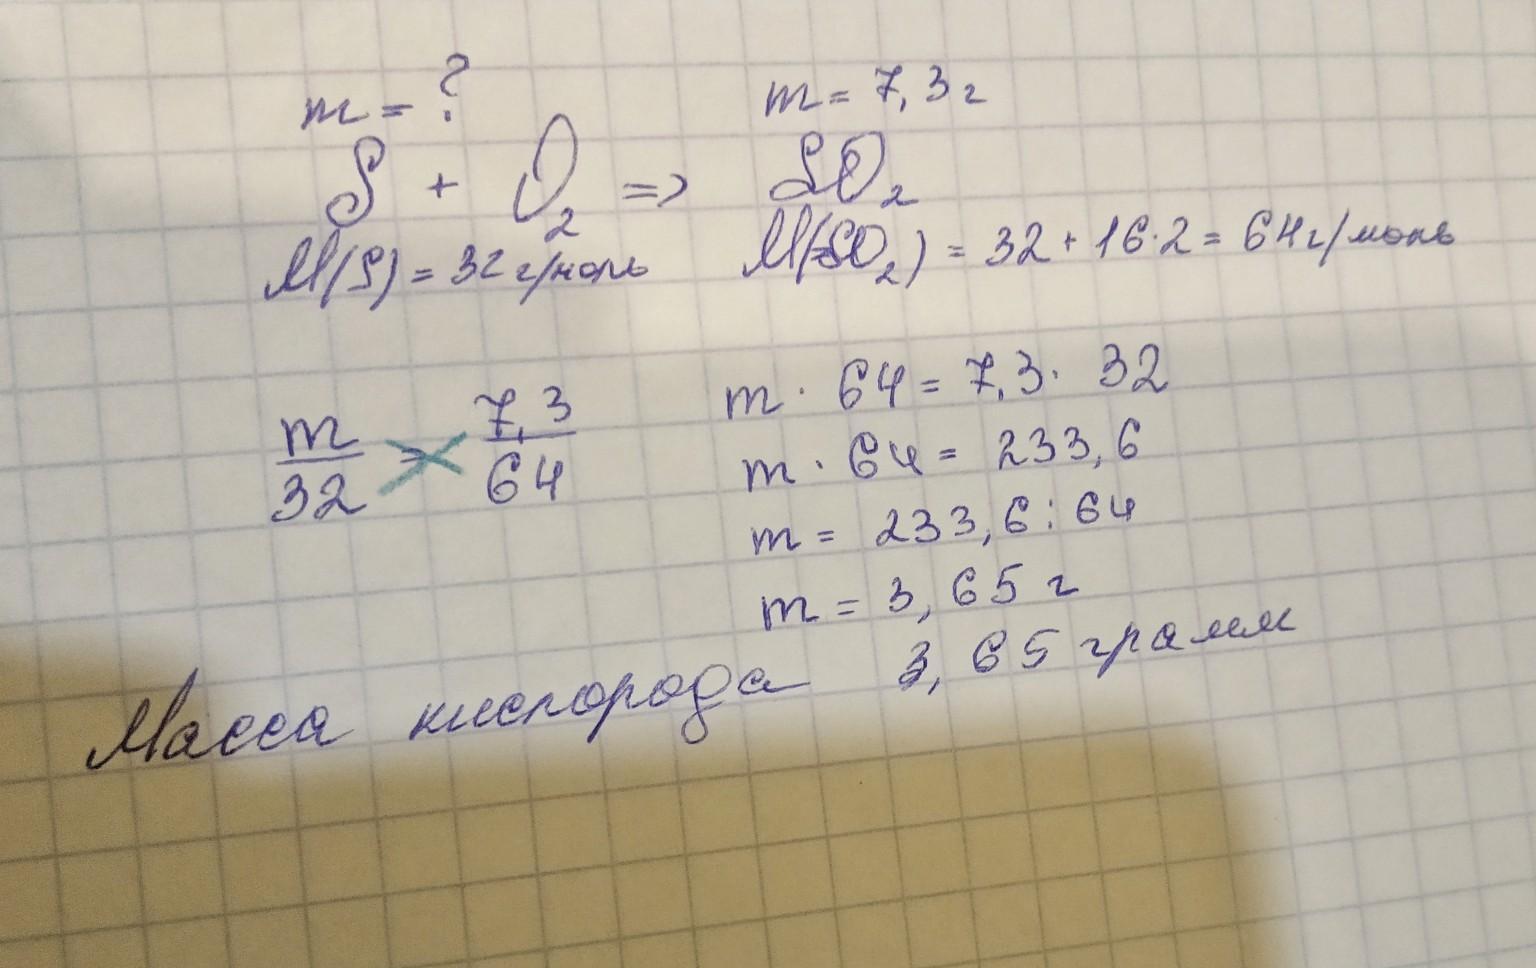 m = ? m = 7,3 г
S + O₂ => SO₂
M(S) = 32 г/моль M(SO₂) = 32 + 16·2 = 64 г/моль
m/32 = 7,3/64
m · 64 = 7,3 · 32
m · 64 = 233,6
m = 233,6 : 64
m = 3,65 г
Масса кислорода 3,65 грамм